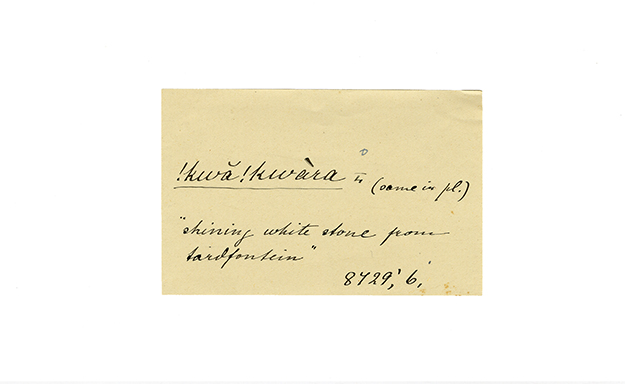 !kwă!kwàra (same in pl.)
"shining white stone from
tardfontein"
8729,' 6,'